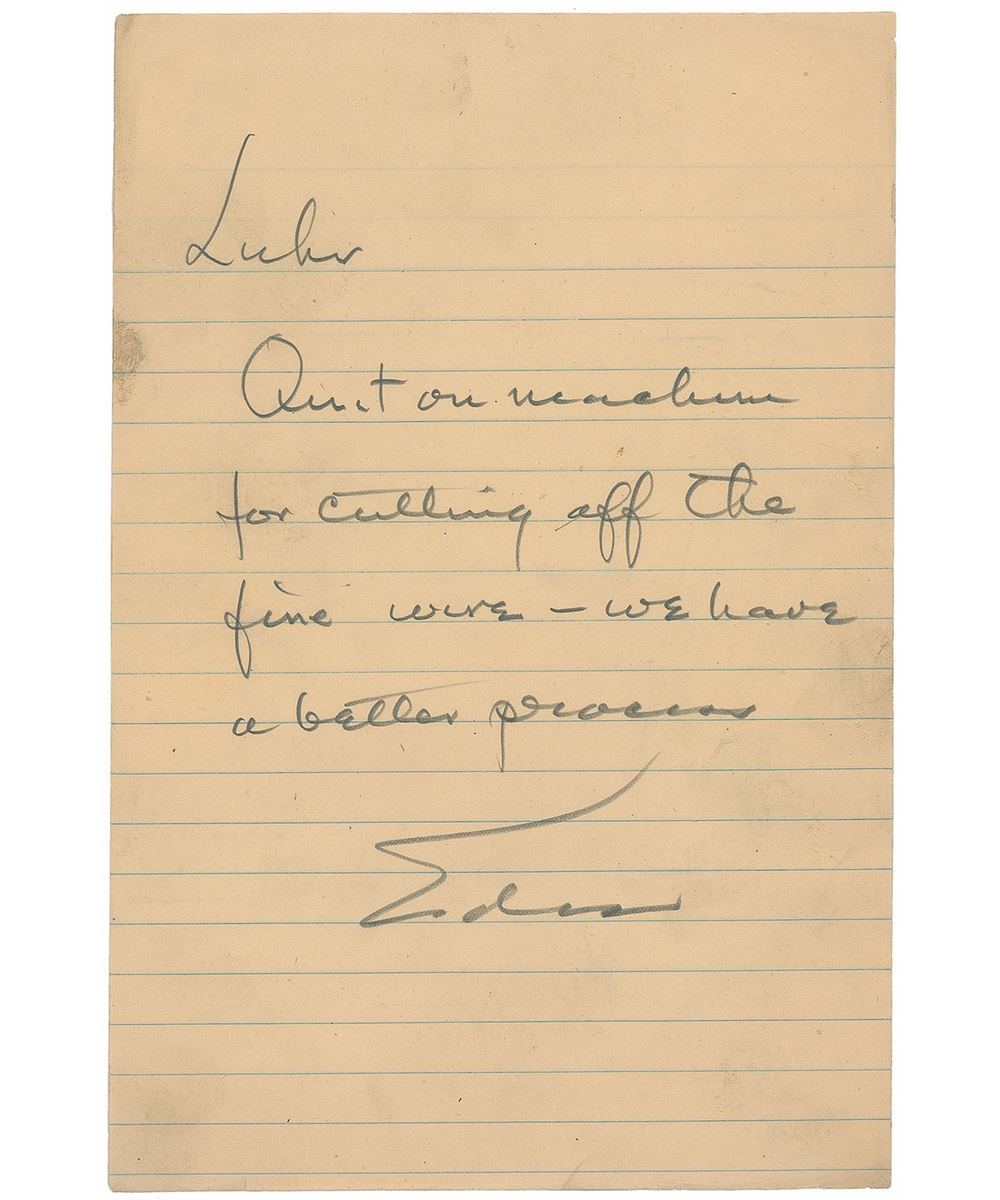 Luhr
Quit on machine
for cutting off the
fine wire – we have
a better process
Edison